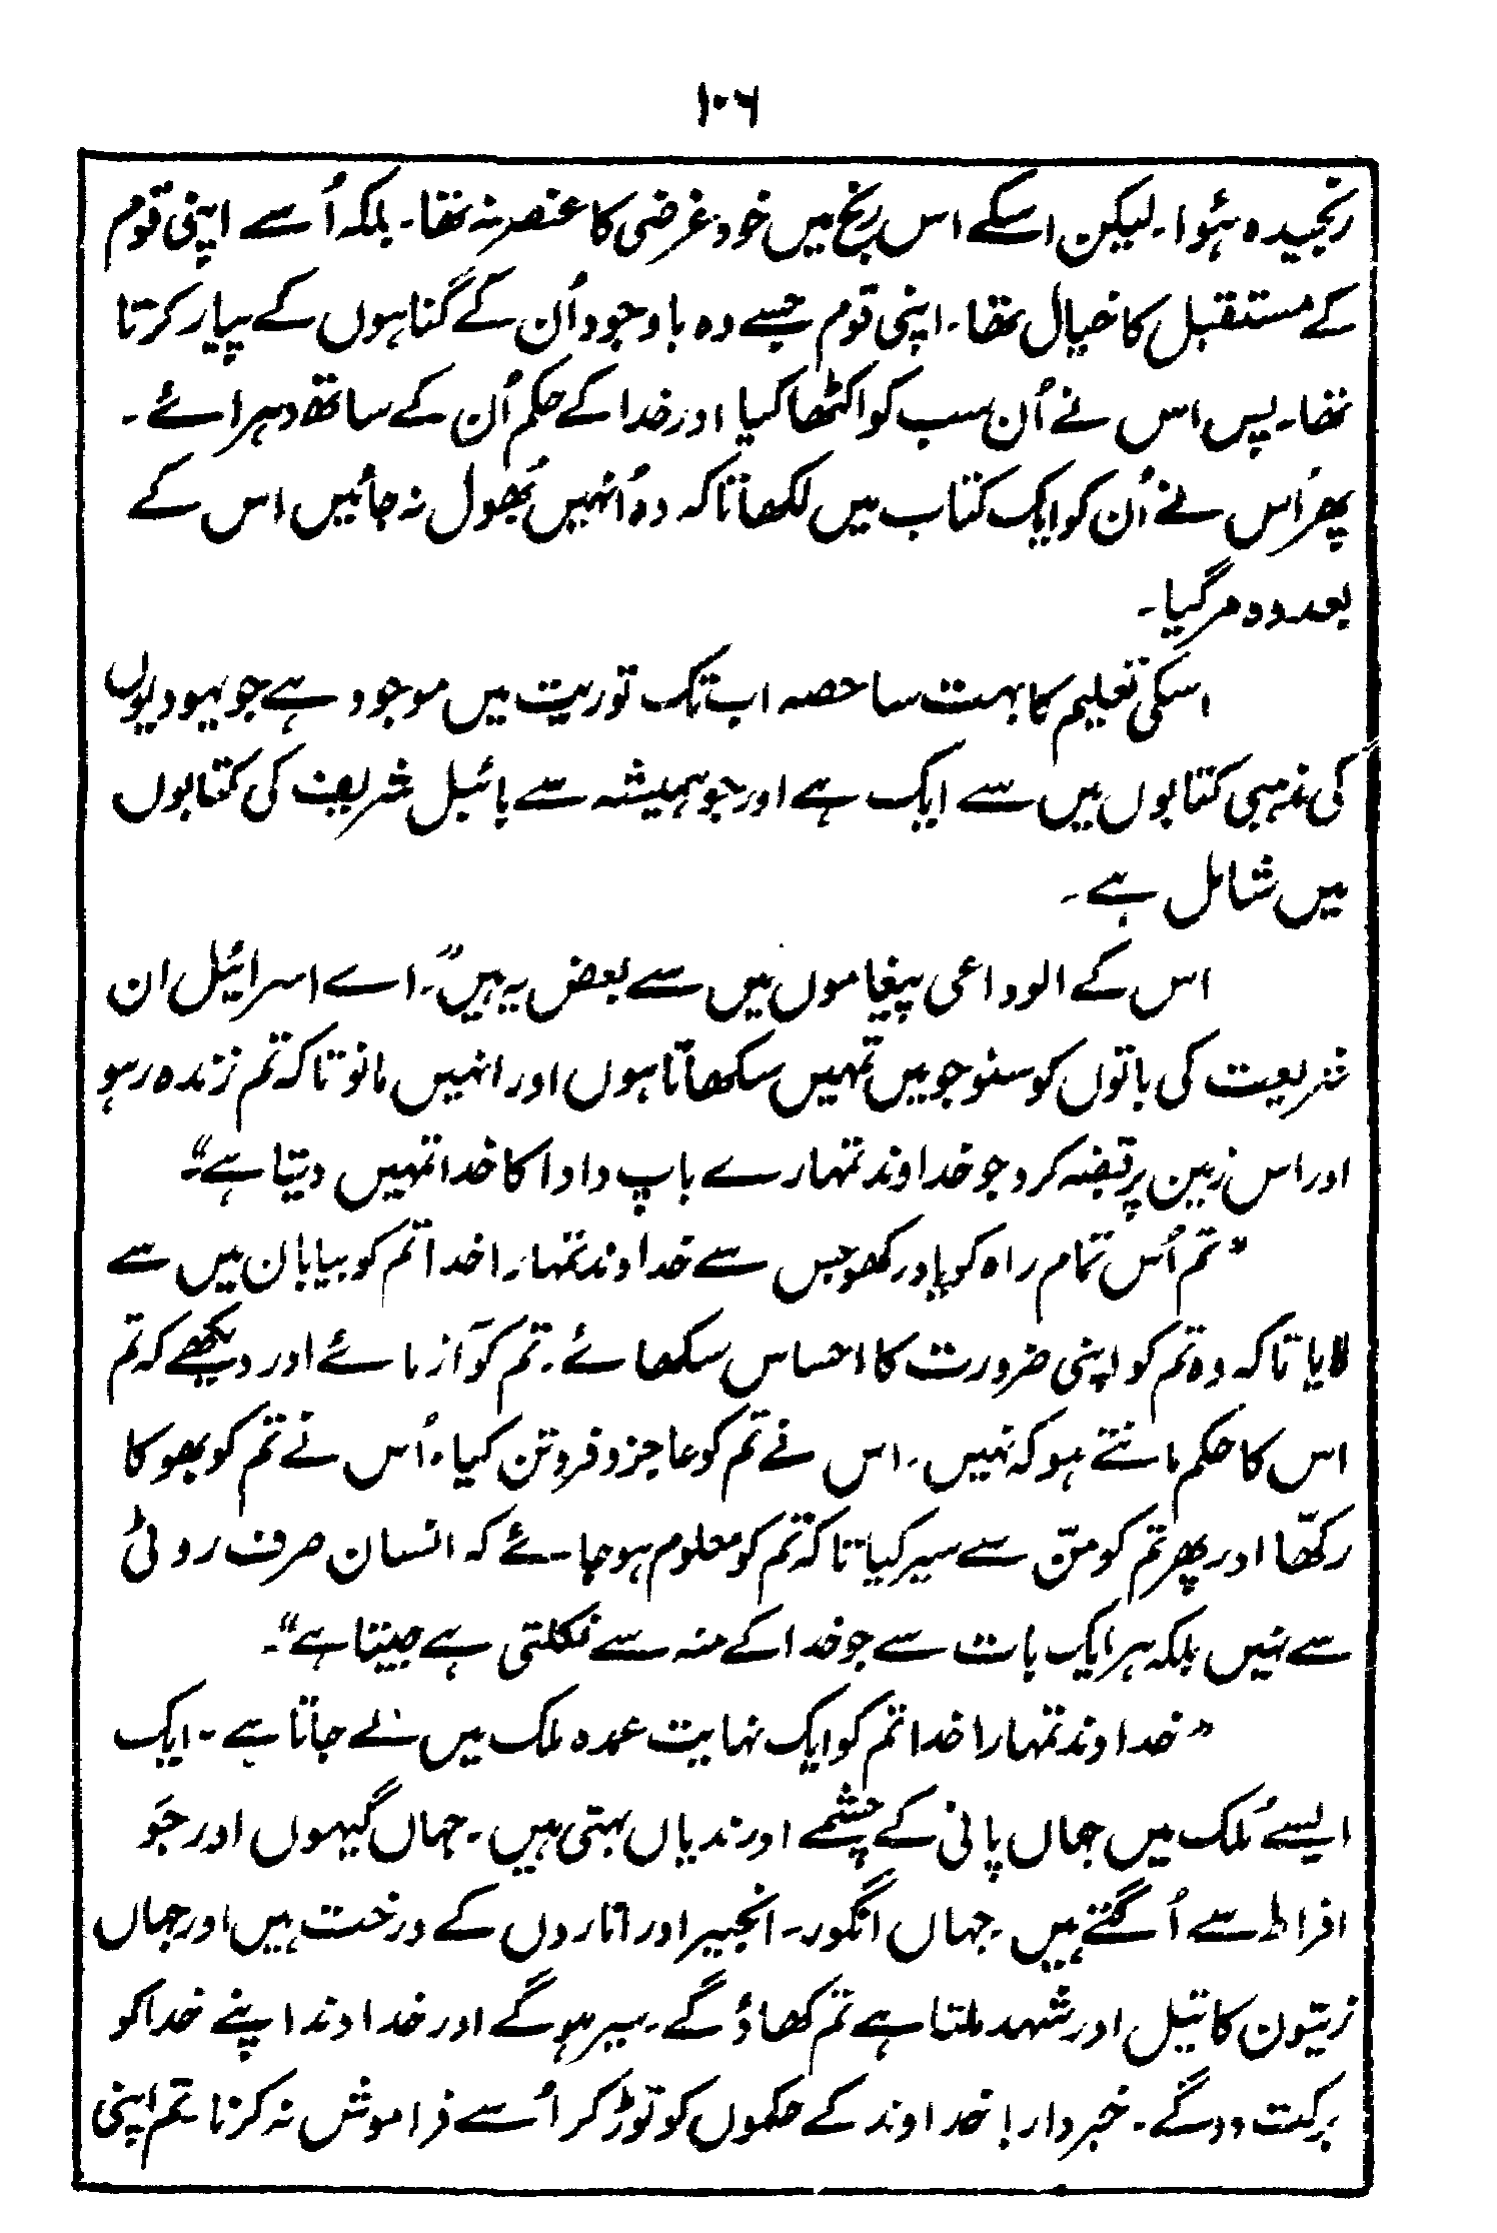 ۱۰۶
رنجیدہ ہُوا۔ لیکن اسکے اس رنج میں خود غرضی کا عنصر نہ تھا۔ بلکہ اُسے اپنی قوم
کے مستقبل کا خیال تھا۔ اپنی قوم جسے وہ باوجود اُن کے گناہوں کے پیار کرتا
تھا۔ پس اس نے اُن سب کو اکٹھا کیا اور خدا کے حکم اُن کے ساتھ دہرائے۔
پھر اُس نے اُن کو ایک کتاب میں لکھا تاکہ وہ اُنہیں بُھول نہ جائیں اس کے
بعد وہ مر گیا۔
اسکی تعلیم کا بہت سا حصہ اب تک توریت میں موجود ہے جو یہودیوں
کی مذہبی کتابوں میں سے ایک ہے اور جو ہمیشہ سے بائبل شریف کی کتابوں
میں شامل ہے۔
اس کے الوداعی پیغاموں میں سے بعض یہ ہیں۔ "اے اسرائیل ان
شریعت کی باتوں کو سنو جو میں تمہیں سکھاتا ہوں اور انہیں مانو تاکہ تم زندہ رہو
اور اس زمین پر قبضہ کرو جو خداوند تمہارے باپ دادا کا خدا تمہیں دیتا ہے"۔
"تم اُس تمام راہ کو یاد رکھو جس سے خداوند تمہارا خدا تم کو بیابان میں سے
لایا تاکہ وہ تم کو اپنی ضرورت کا احساس سکھائے۔ تم کو آزمائے اور دیکھے کہ تم
اس کا حکم مانتے ہو کہ نہیں۔ اس نے تم کو عاجز و فروتن کیا۔ اُس نے تم کو بھوکا
رکھّا اور پھر تم کو منّ سے سیر کیا تاکہ تم کو معلوم ہو جائے کہ انسان صرف روٹی
سے نہیں بلکہ ہر ایک بات سے جو خدا کے منہ سے نکلتی ہے جیتا ہے"۔
"خداوند تمہارا خدا تم کو ایک نہایت عمدہ ملک میں لے جاتا ہے۔ ایک
ایسے مُلک میں جہاں پانی کے چشمے اور ندیاں بہتی ہیں۔ جہاں گیہوں اور جَو
افراط سے اُگتے ہیں۔ جہاں انگور۔ انجیر اور اناروں کے درخت ہیں اور جہاں
زیتون کا تیل اور شہد ملتا ہے تم کھاؤ گے۔ سیر ہو گے اور خداوند اپنے خدا کو
برکت دو گے۔ خبردار! خداوند کے حکموں کو توڑ کر اُسے فراموش نہ کرنا۔ تم اپنی